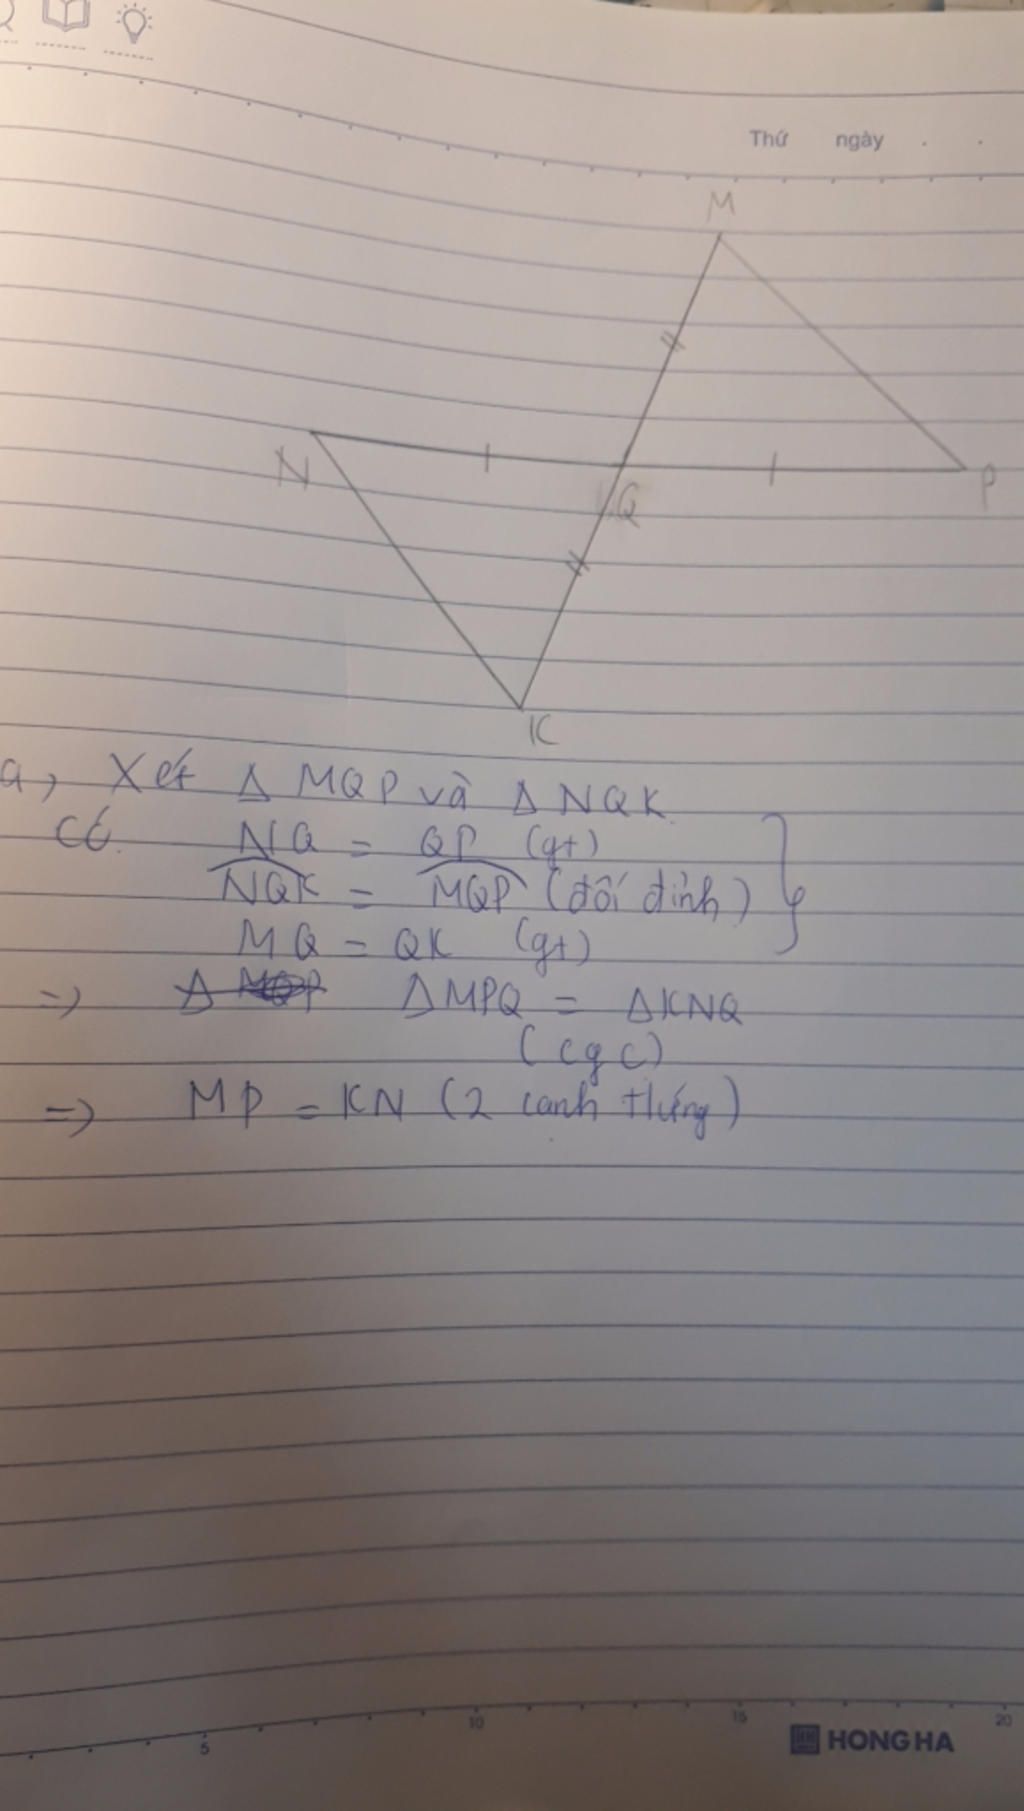 Thứ ngày
M
N
Q
P
K
a, Xét Δ MQP và Δ NQK
Có NQ = QP (gt)
NQK = MQP (đối đỉnh)
MQ = QK (gt)
=> Δ MQP ΔMPQ = ΔKNQ
(cgc)
=> MP = KN (2 canh tứng)
5 10 15 20
HONG HA